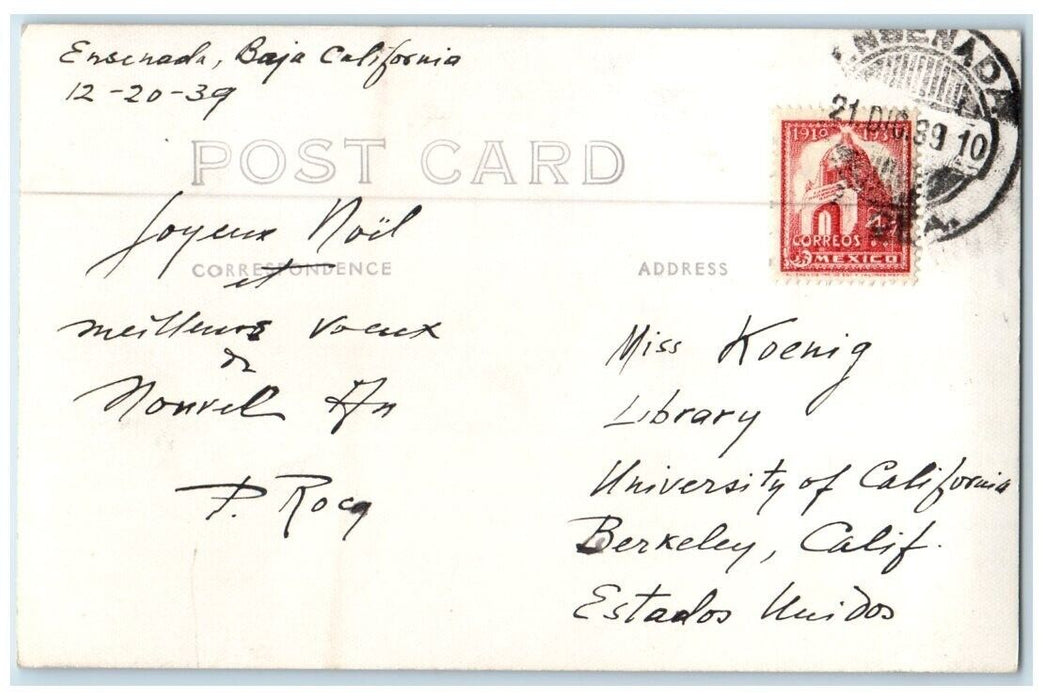 Ensenada, Baja California
12-20-39
ENSENADA
21.DIC.39 10
POST CARD
1910
CORREOS
MEXICO
Joyeux Noël
CORRESPONDENCE
ADDRESS
et
meilleurs voeux
de
Nouvel An
P. Rocq
Miss Koenig
Library
University of California
Berkeley, Calif.
Estados Unidos